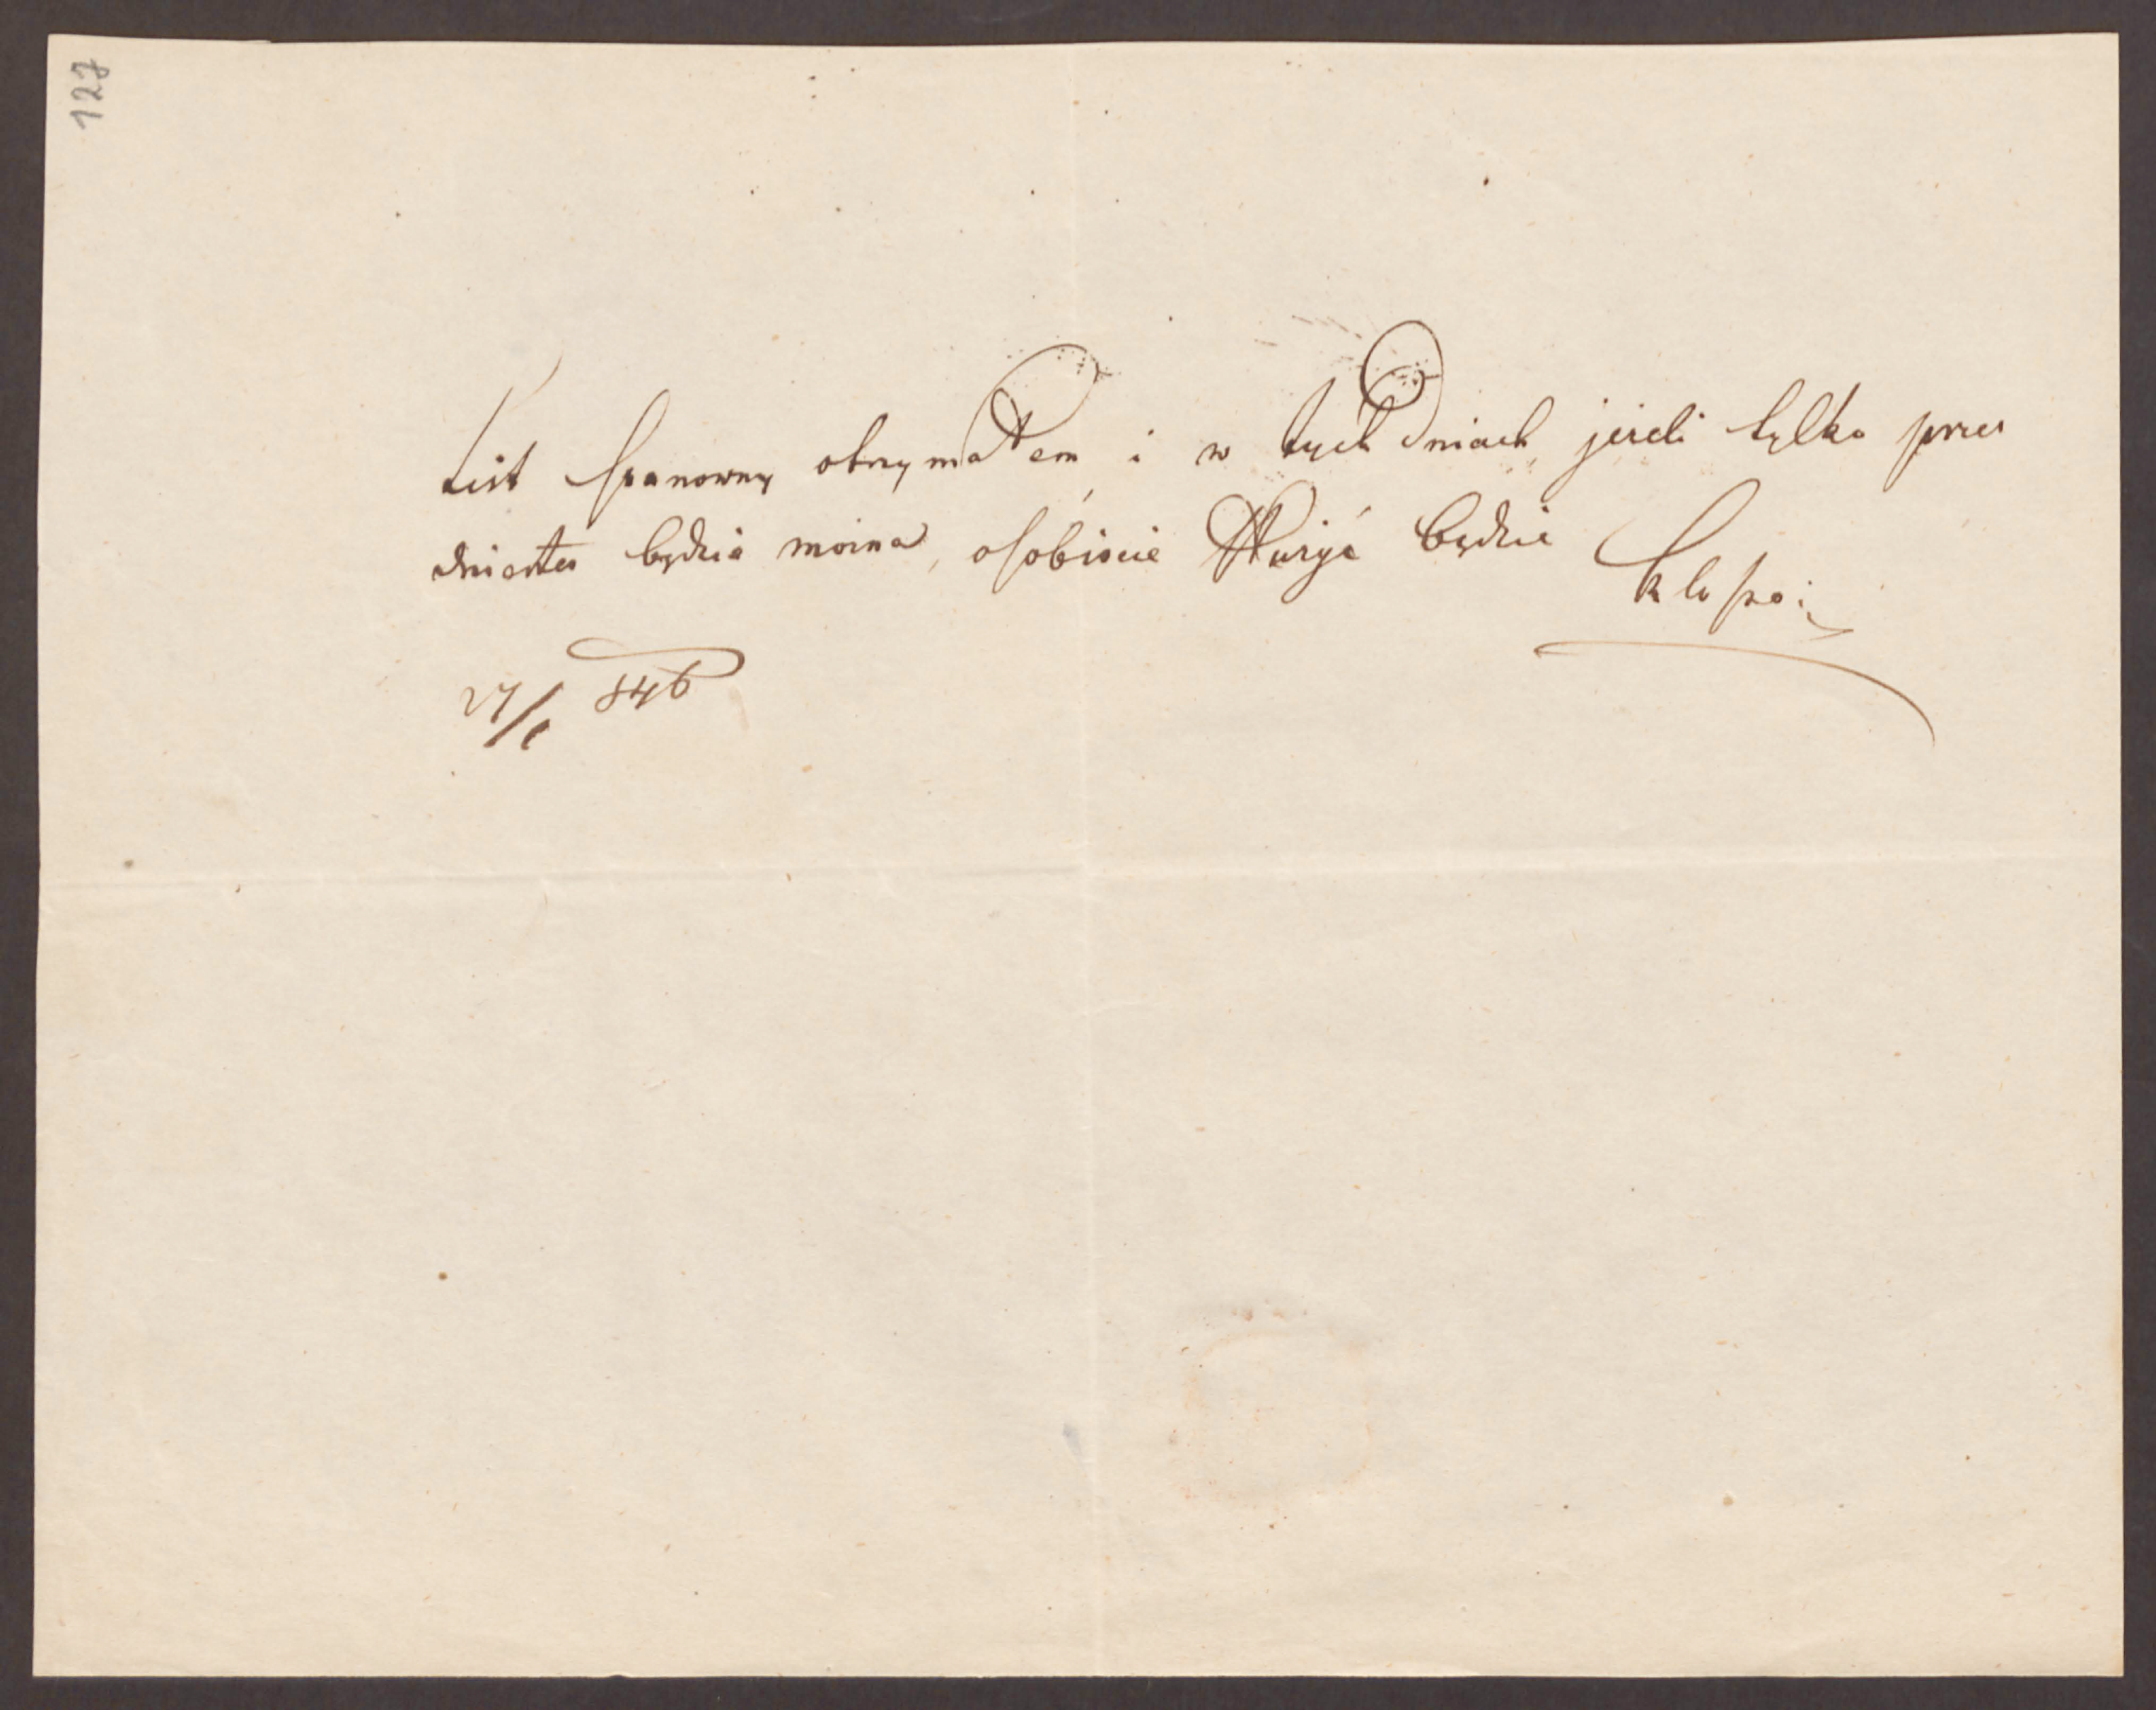 127
List szanowny otrzymałem i w tych dniach, jeżeli tylko przez
dniester będzie można, osobiście służyć będzie
27/1 846